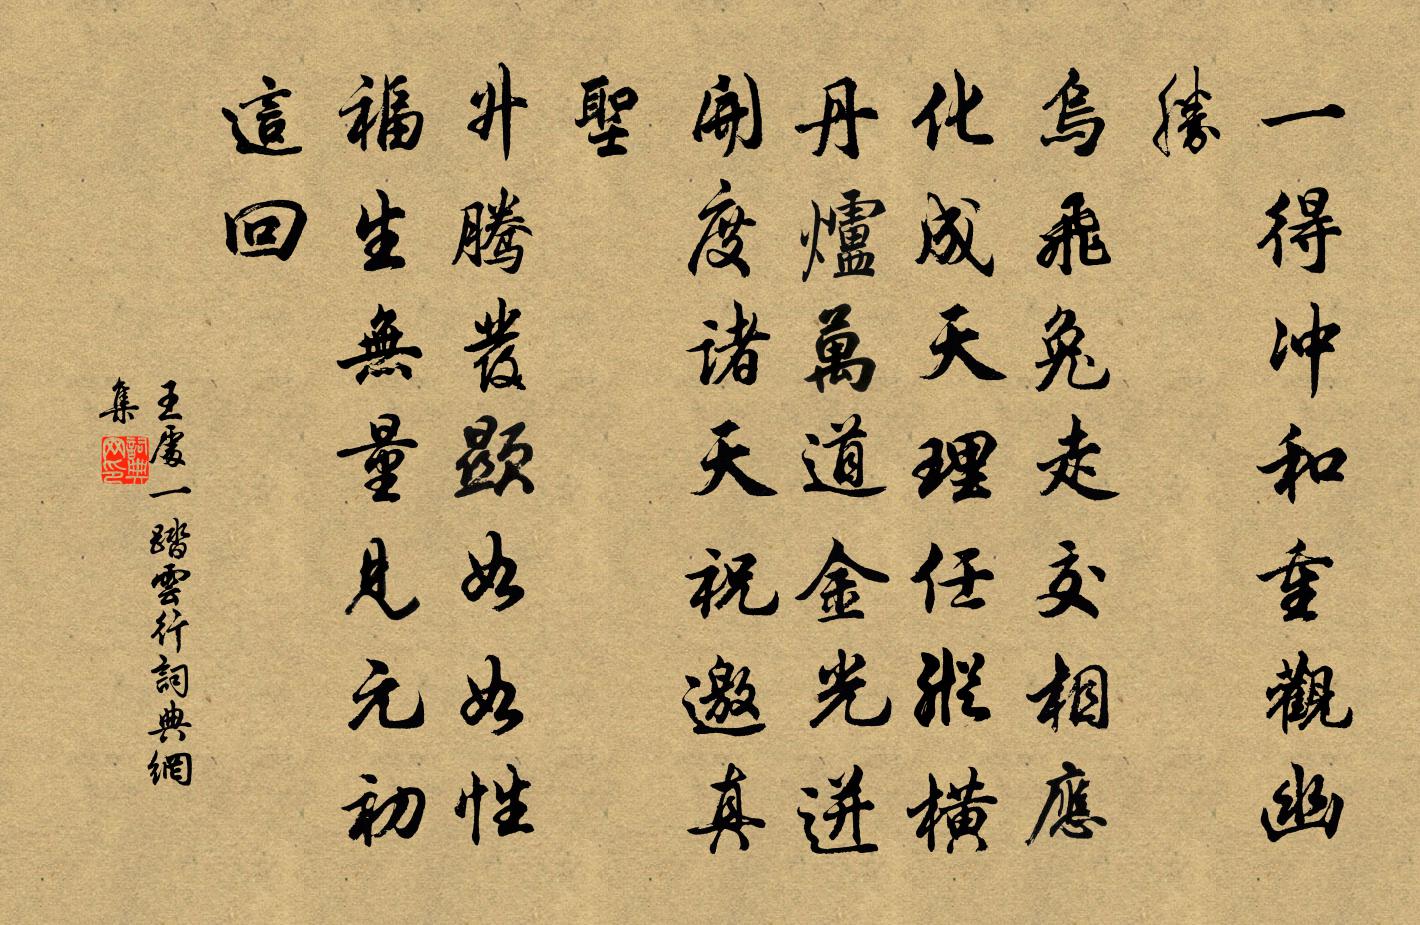 一得沖和重觀幽
勝
烏飛兔走交相應
化成天理任縱橫
丹爐萬道金光迸
開度諸天祝邀真
聖
升騰發顯如如性
福生無量見元初
這回
王處一踏雲行詞典網
集
詞典
网印